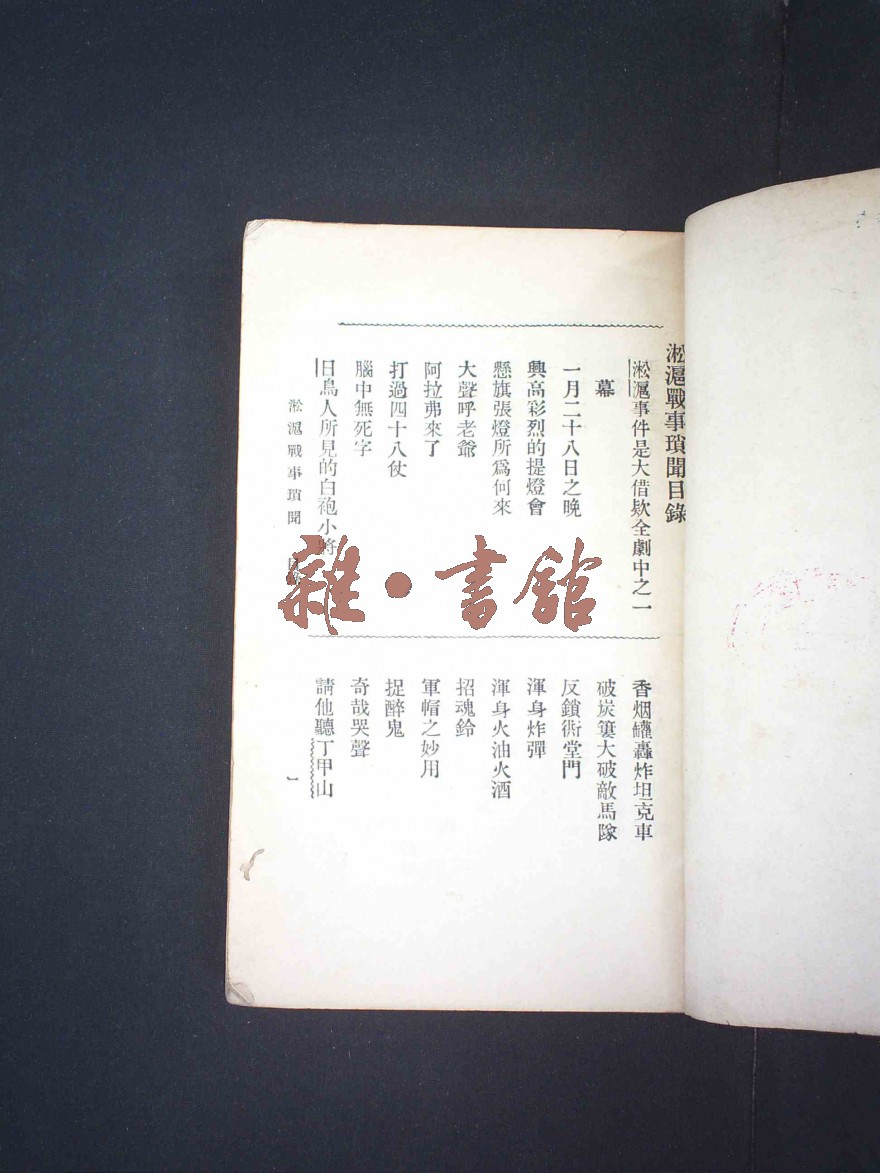 淞滬戰事瑣聞目錄
淞滬事件是大借欵全劇中之一
幕
一月二十八日之晚
興高彩烈的提燈會
懸旗張燈所爲何來
大聲呼老爺
阿拉弗來了
打過四十八仗
腦中無死字
日鳥人所見的白袍小將
香烟罐轟炸坦克車
破炭簍大破敵馬隊
反鎖衖堂門
渾身炸彈
渾身火油火酒
招魂鈴
軍帽之妙用
捉醉鬼
奇哉哭聲
請他聽丁甲山
淞滬戰事瑣聞 目錄
一
雜·書館